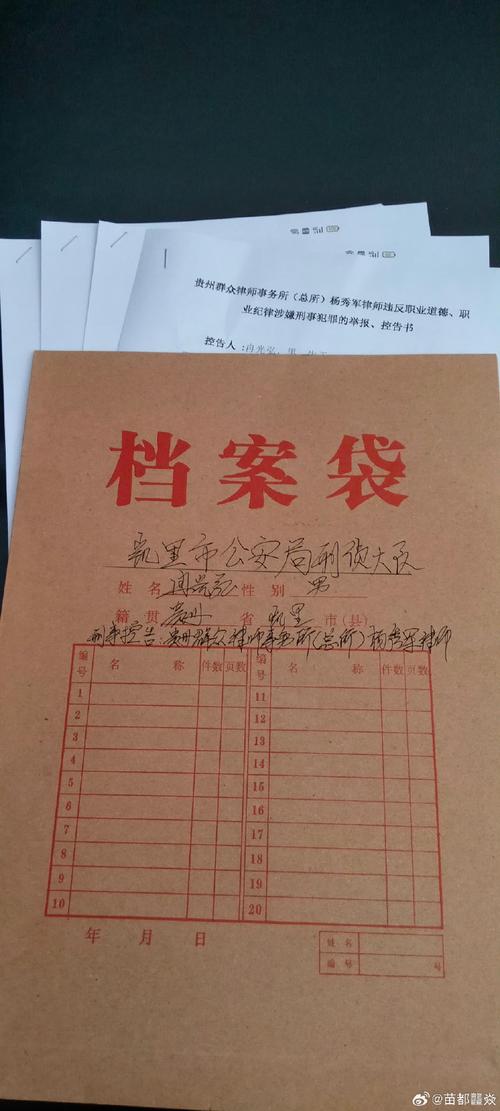 贵州群众律师事务所（总所）杨秀军律师违反职业道德、职
业纪律涉嫌刑事犯罪的举报、控告书
控告人：冉光弘，男
档案袋
凯里市公安局刑侦大队
姓名 冉光弘 性别 男
籍贯 贵州 省 凯里 市（县）
刑事控告：贵州群众律师事务所（总所）杨秀军律师
编号 名称 件数 页数 编号 名称 件数 页数
1 11
2 12
3 13
4 14
5 15
6 16
7 17
8 18
9 19
10 20
年 月 日
姓名
编号 号
@苗都焱